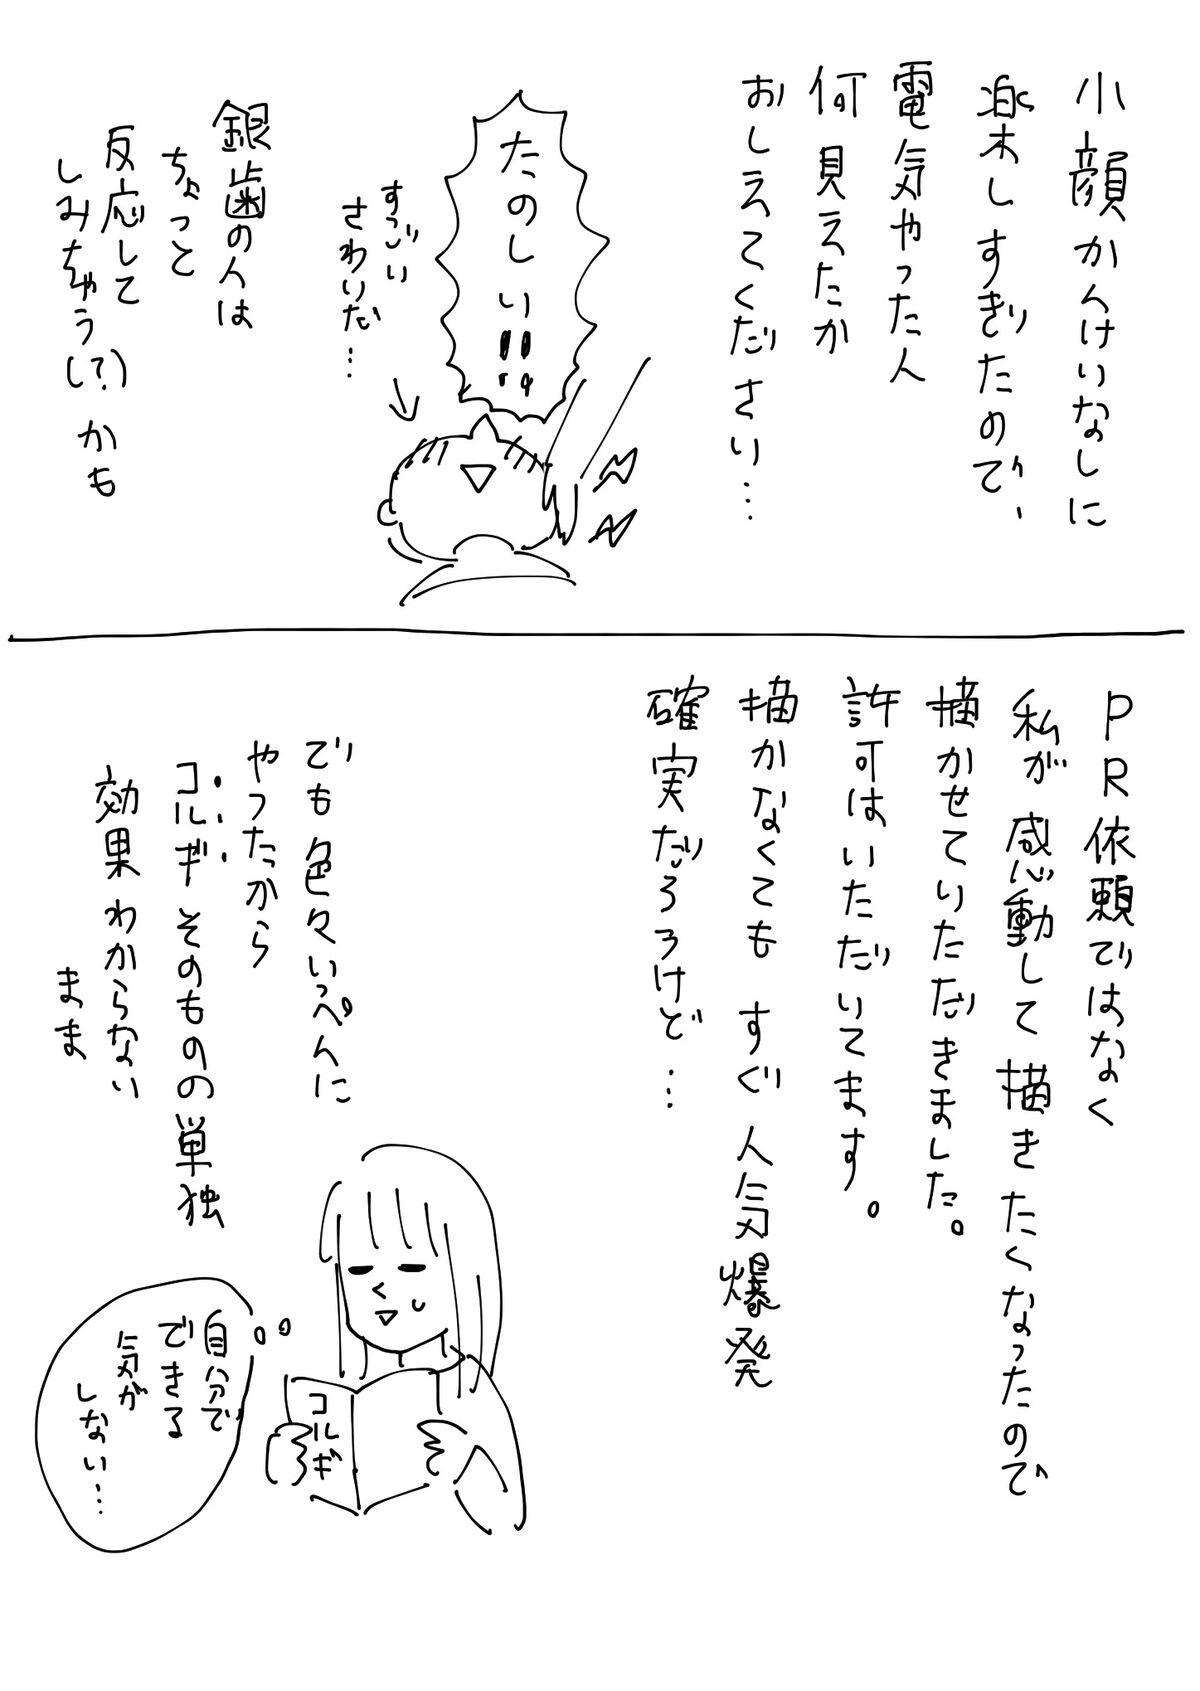 小顔かんけいなしに
楽しすぎたので、
電気やった人
何見えたか
おしえてください…
たのしい!!!!
すごい
さわりだ…
銀歯の人は
ちょっと
反応して
しみちゃう(?)かも
PR依頼ではなく
私が感動して描きたくなったので
描かせていただきました。
許可はいただいてます。
描かなくてもすぐ人気爆発
確実だろうけど…
でも色々いっぺんに
やったから
コルギそのものの単独
効果わからない
まま
コルギ
自分で
できる
気が
しない…